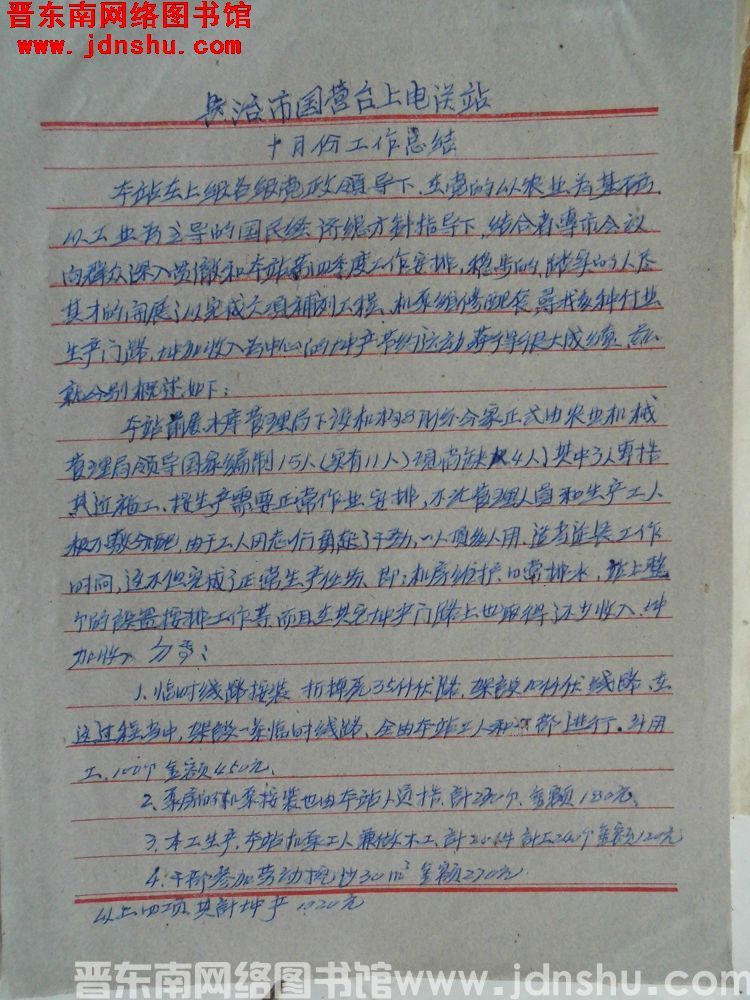 晋东南网络图书馆
www.jdnshu.com
长治市国营台上电送站
十月份工作总结
本站在上级各级党政领导下,在党的以农业为基础,
以工业为主导的国民经济总方针指导下,结合者专市会议
向群众深入贯彻和本站第四季度工作安排,稳步的人尽
其才的开展了以完成大项工程、机泵组修配装寻找多种作业
生产门路,增加收入为中心的增产节约运动获得很大成绩,
就分别概述如下:
本站前展水库管理局下设机构8月份分家正式由农业机械
管理局领导国家编制15人(实有11人)现尚缺4人)其中3人
施工、按生产需要正常作业安排,不论管理人员和生产工人
极不敷分配,由于工人同志们鼓起了干劲,一人顶几人用,适当延长工作
时间,这不但完成了正常生产任务、即:机房维护、日常排水,站上整
个的设置按排工作等而且在其它增产门路上也取得不少收入、增
加收入分季:
1.临时线路按装 折掉旧35仟伏路,架设10仟伏线路,在
这过程当中,架设一条临时线路、全由本站工人和干部进行。斗用
工、100个金额450元、
2、泵房的机泵按装也由本站人员 計230个、金额180元、
3、木工生产、本站机泵工人兼做木工,計20件計工240个金额120元
4、干部参加劳动挖沙30m³金额270元
以上四项共計增产1020元
晋东南网络图书馆 www.jdnshu.com